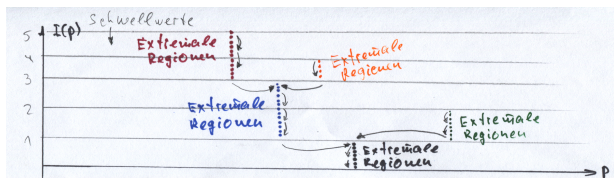 Schwellwerte
5 I(p)
Extremale
Regionen
4
Extremale
Regionen
3
Extremale
Regionen
2
Extremale
Regionen
1
Extremale
Regionen
p